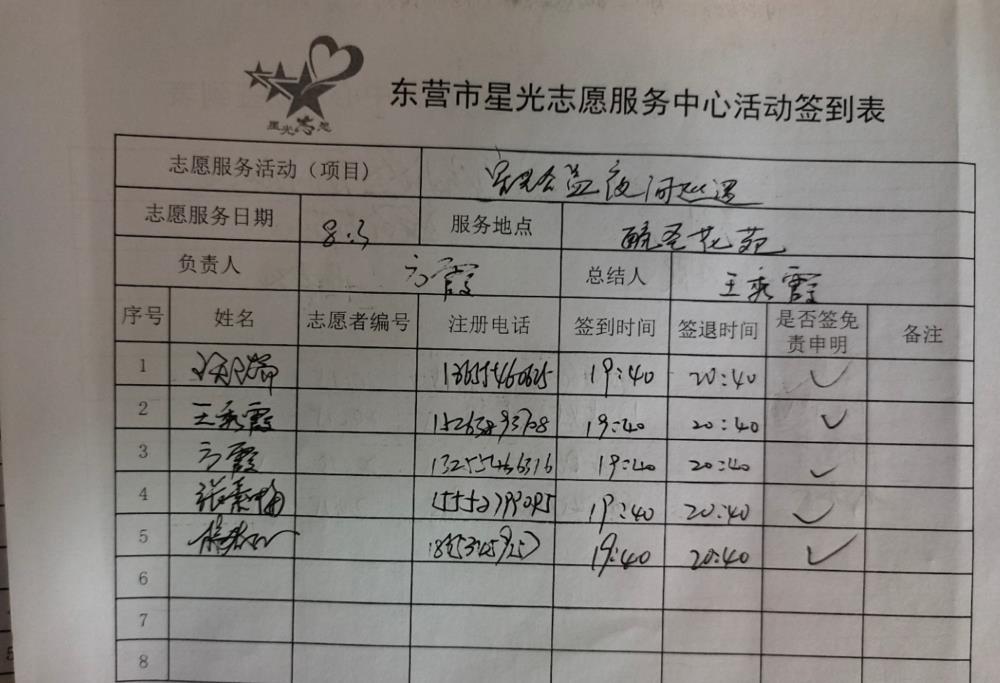 星光志愿
东营市星光志愿服务中心活动签到表
志愿服务活动（项目） 夜间巡逻
志愿服务日期 8.3 服务地点 花苑
负责人 方霞 总结人 王秀霞
序号 姓名 志愿者编号 注册电话 签到时间 签退时间 是否签免责申明 备注
1 19:40 20:40 ✓
2 王秀霞 19:40 20:40 ✓
3 方霞 13255466316 19:40 20:40 ✓
4 张秀梅 15552799095 19:40 20:40 ✓
5 19:40 20:40 ✓
6
7
8